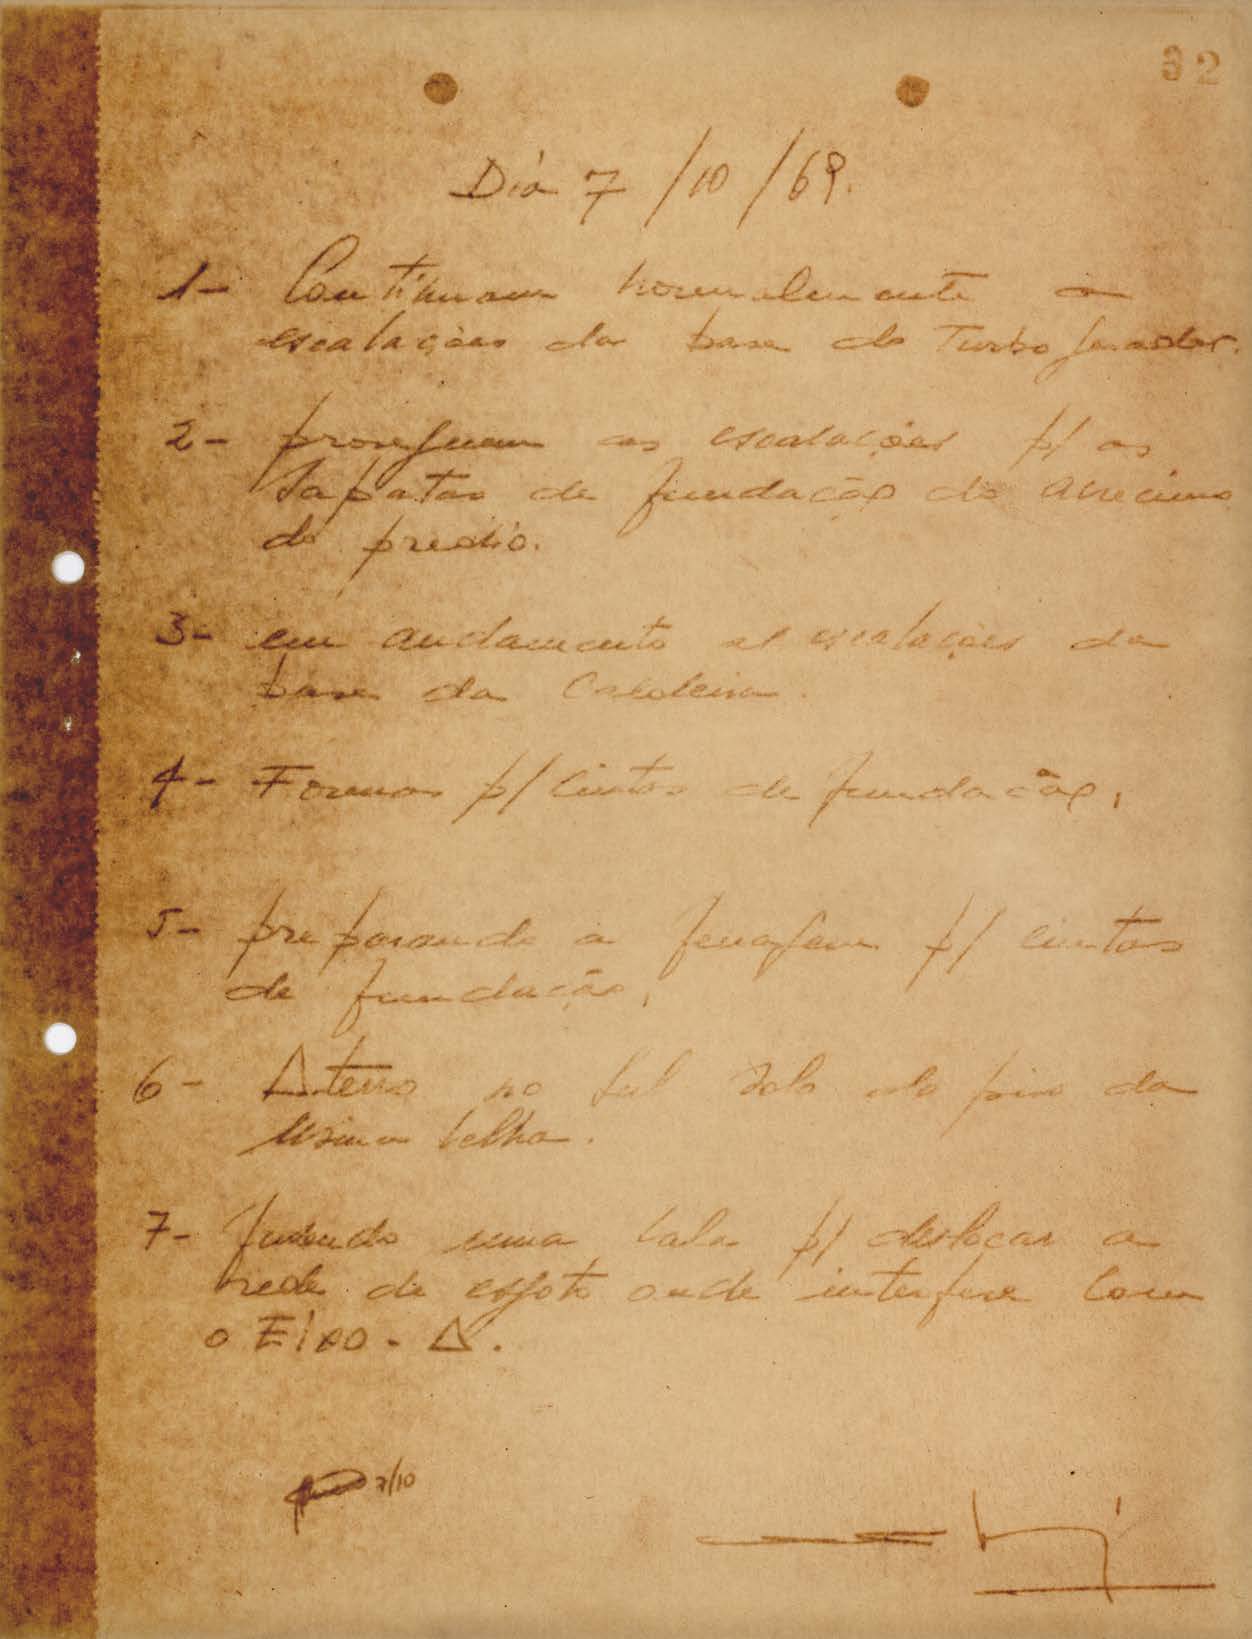 32
Dia 7/10/69.
1- Continuam normalmente as
escalações da base do Turbo gerador.
2- proseguem as escalações p/ as
Sapatas de fundação do
do predio.
3- em andamento as escalações da
base da Caldeira.
4- Formas p/ cintas de fundação,
5- preparando a ferragem p/ cintas
de fundação,
6- Aterro no sub solo do piso da
Usina Velha.
7- fazendo uma Vala p/ deslocar a
rede de esgoto onde interfere Com
o Eixo - A.
7/10